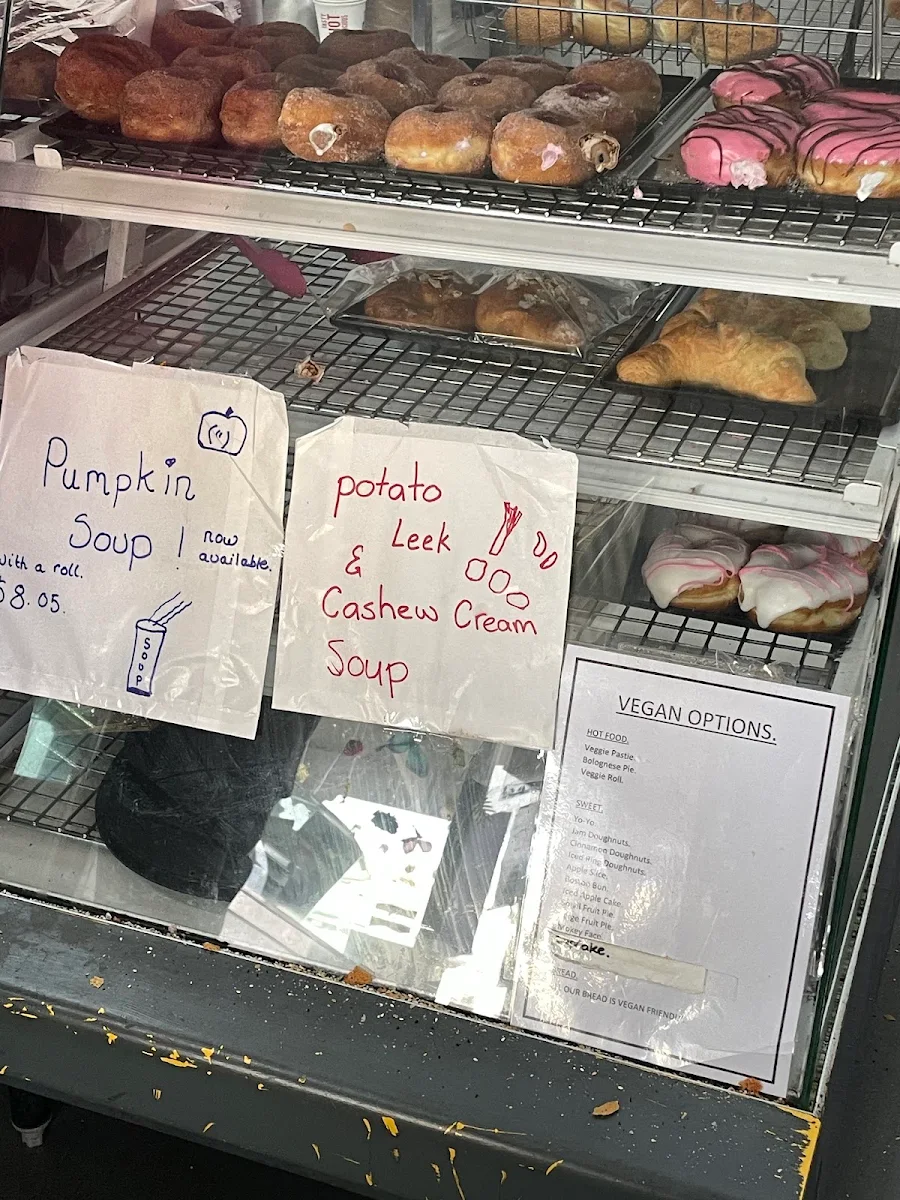 Pumpkin
Soup!
now
available.
with a roll.
$8.05.
SOUP
potato
Leek
&
Cashew Cream
Soup
VEGAN OPTIONS.
HOT FOOD.
Veggie Pastie.
Bolognese Pie.
Veggie Roll.
SWEET.
Yo-Yo.
Jam Doughnuts.
Cinnamon Doughnuts.
Iced Ring Doughnuts.
Apple Slice.
Boston Bun.
Iced Apple Cake.
Fruit Pie.
Fruit Pie.
Face.
OUR BREAD IS VEGAN FRIENDLY